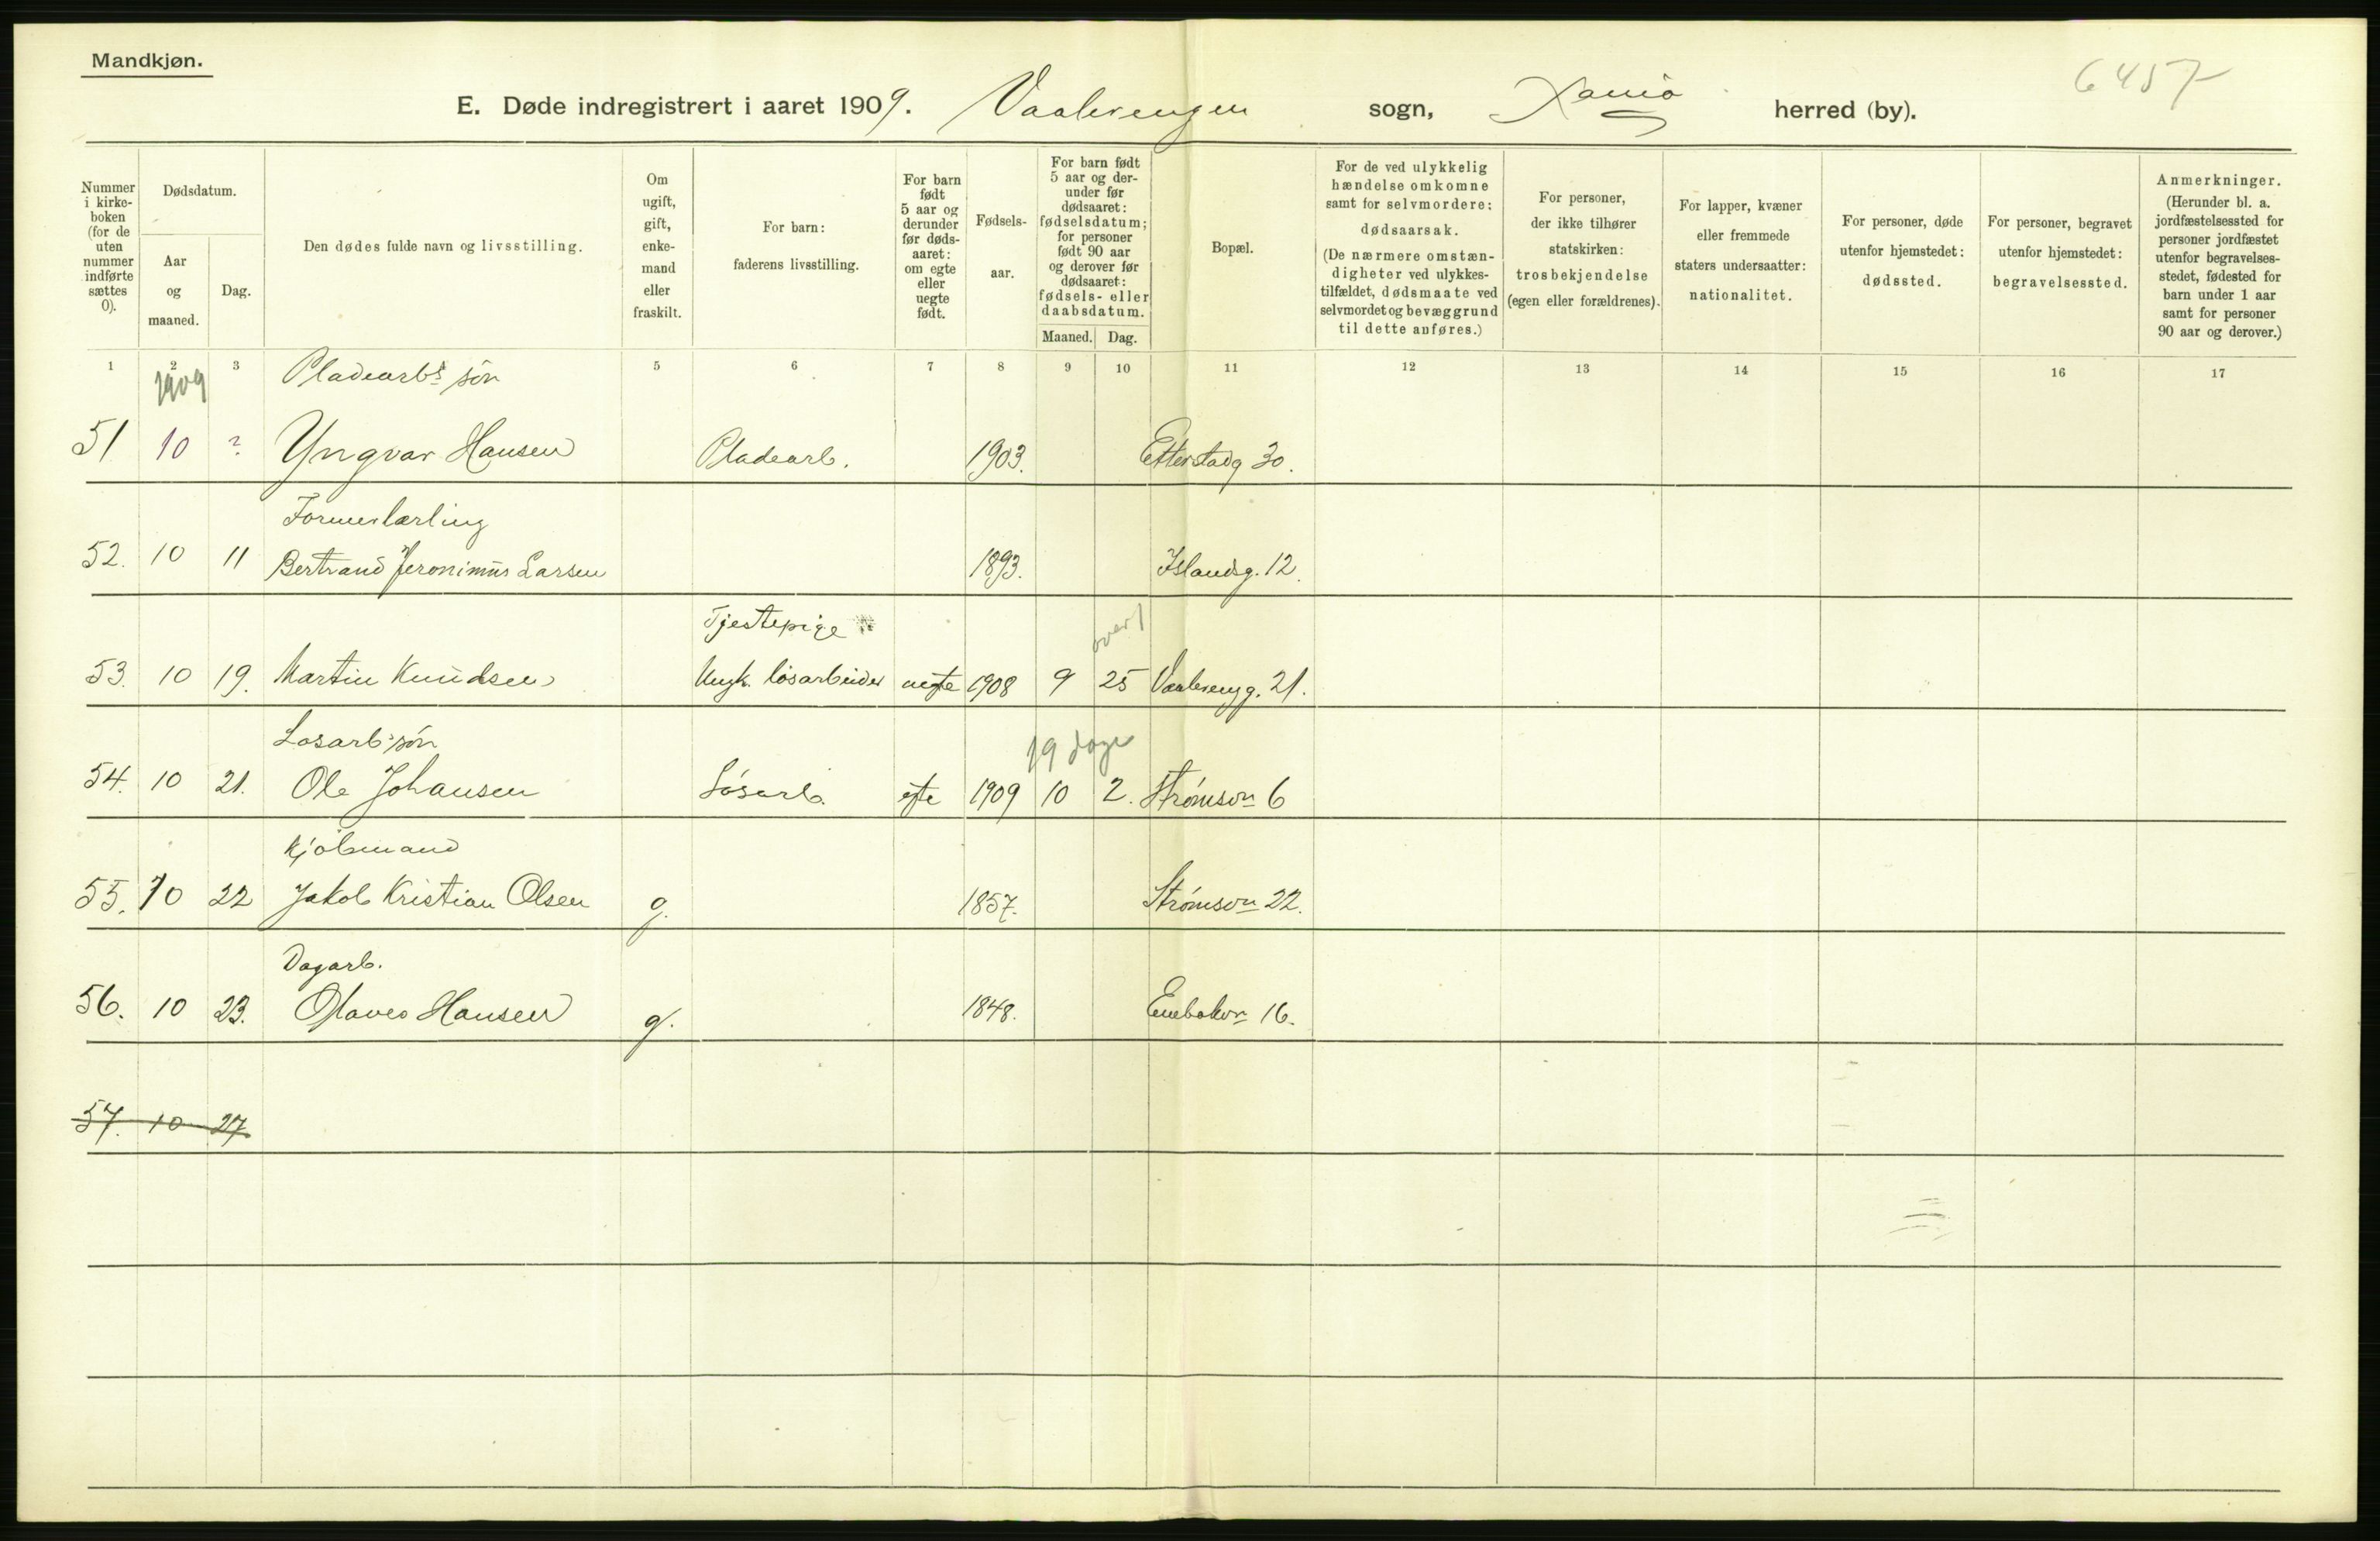 Mandkjøn.
6457
E. Døde indregistrert i aaret 1909. Vaalerengen sogn, Xania herred (by).
Nummer i kirkeboken (for de uten nummer indførte sættes 0).
Dødsdatum.
Aar og maaned.
Dag.
Den dødes fulde navn og livsstilling.
Om ugift, gift, enkemand eller fraskilt.
For barn: faderens livsstilling.
For barn født 5 aar og derunder før dødsaaret: om egte eller uegte født.
Fødselsaar.
For barn født 5 aar og derunder før dødsaaret: fødselsdatum; for personer født 90 aar og derover før dødsaaret: fødsels- eller daabsdatum.
Maaned. Dag.
Bopæl.
For de ved ulykkelig hændelse omkomne samt for selvmordere: dødsaarsak. (De nærmere omstændigheter ved ulykkestilfældet, dødsmaate ved selvmordet og bevæggrund til dette anføres.)
For personer, der ikke tilhører statskirken: trosbekjendelse (egen eller forældrenes).
For lapper, kvæner eller fremmede staters undersaatter: nationalitet.
For personer, døde utenfor hjemstedet: dødssted.
For personer, begravet utenfor hjemstedet: begravelsessted.
Anmerkninger. (Herunder bl. a. jordfæstelsessted for personer jordfæstet utenfor begravelsesstedet, fødested for barn under 1 aar samt for personer 90 aar og derover.)
1 2 3 5 6 7 8 9 10 11 12 13 14 15 16 17
1909 Pladearbs søn
51 10 ? Yngvar Hansen Pladearb. 1903. Etterstadg 30.
Formerlærling
52. 10 11 Bertrand Jeronimus Larsen 1893. Islandsg. 12.
Tjestepige over 1
53. 10 19. Martin Knudsen Ungk. løsarbeider uegte 1908 9 25 Vaalerengg. 21.
Løsarb søn 19 dage
54. 10 21. Ole Johansen Løsarb. egte 1909 10 2. Strømsvn 6
Kjølmand
55. 10 22 Jakob Kristian Olsen g. 1857. Strømsvn 22.
Dagarb.
56. 10 23. Olaves Hansen g. 1848. Enebakvn 16.
57. 10 27